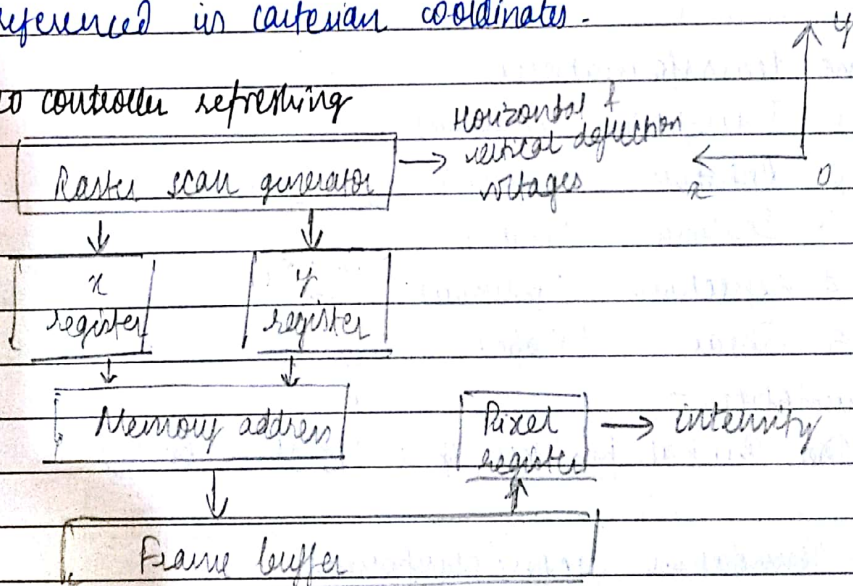 eferenced in cartesian coordinates.
eo controller refreshing
Raster scan generator
Horizontal &
vertical deflection
voltages
y
x
0
x
register
y
register
Memory address
Pixel
register
intensity
Frame buffer